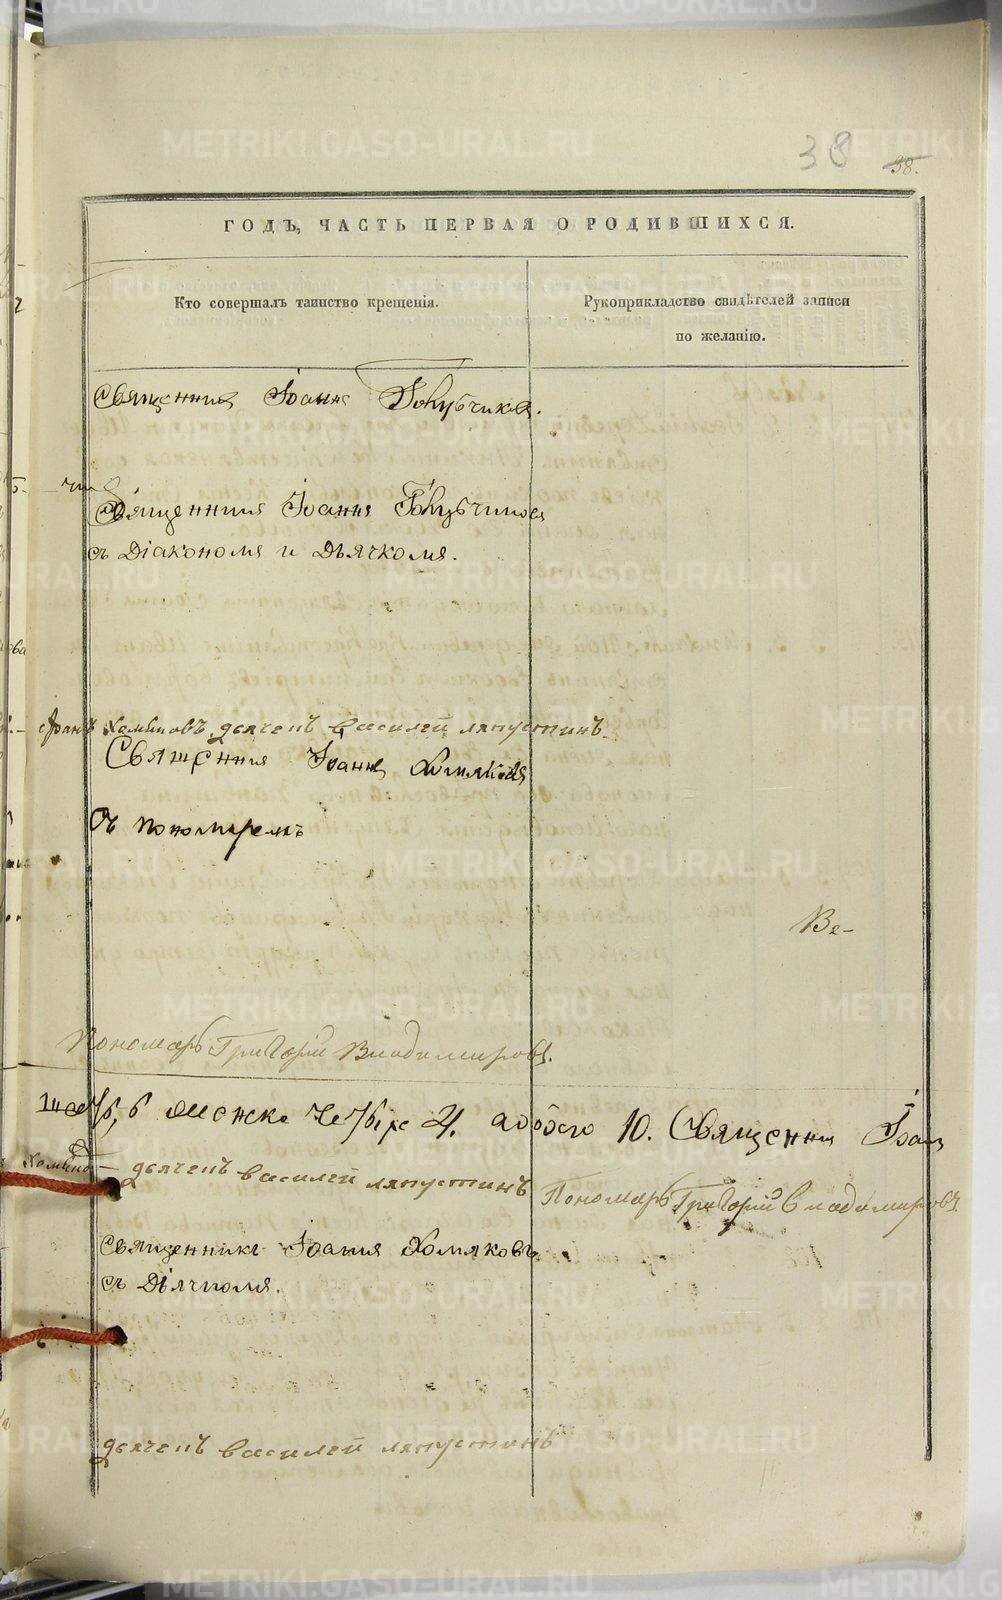 METRIKI.GASO-URAL.RU
38 38.
ГОДЪ, ЧАСТЬ ПЕРВАЯ О РОДИВШИХСЯ.
Кто совершалъ таинство крещенія.
Рукоприкладство свидѣтелей записи
по желанію.
Священникъ Іоаннъ Голубчиковъ.
Священникъ Іоаннъ Голубчиковъ
съ Діакономъ и Дьячкомъ.
Хомяковъ дьячекъ василей ляпустинъ
Священникъ Іоаннъ Хомяковъ
Съ пономаремъ
Ве-
Пономарь Григорій Владимировъ.
6 женска 4. обоего 10. Священникъ Іоан
Хомяковъ – дьячекъ василей ляпустинъ Пономарь Григорій Владимировъ.
Священникъ Іоаннъ Хомяковъ
съ Дьячкомъ.
дьячекъ василей ляпустинъ